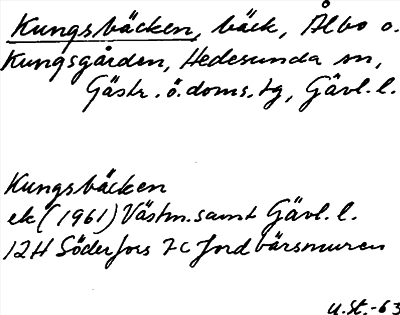 Kungsbäcken, bäck, Ålbo o.
Kungsgården, Hedesunda sn,
Gästr. ö. doms. tg, Gävl. l.
Kungsbäcken
ek (1961) Västm. samt Gävl. l.
12H Söderfors 7c Jordbärsmuren
U.St.-63